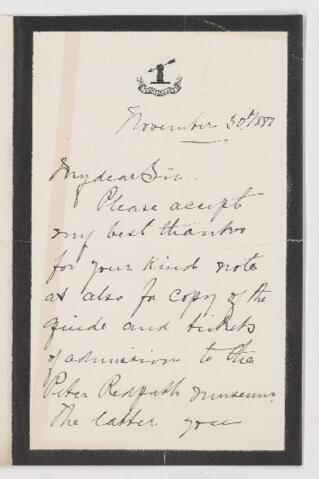 November 30th/882
My dear Sir.
Please accept
my best thanks
for your kind note
as also for copy of the
guide and tickets
of admission to the
Peter Redpath Museum.
The latter you